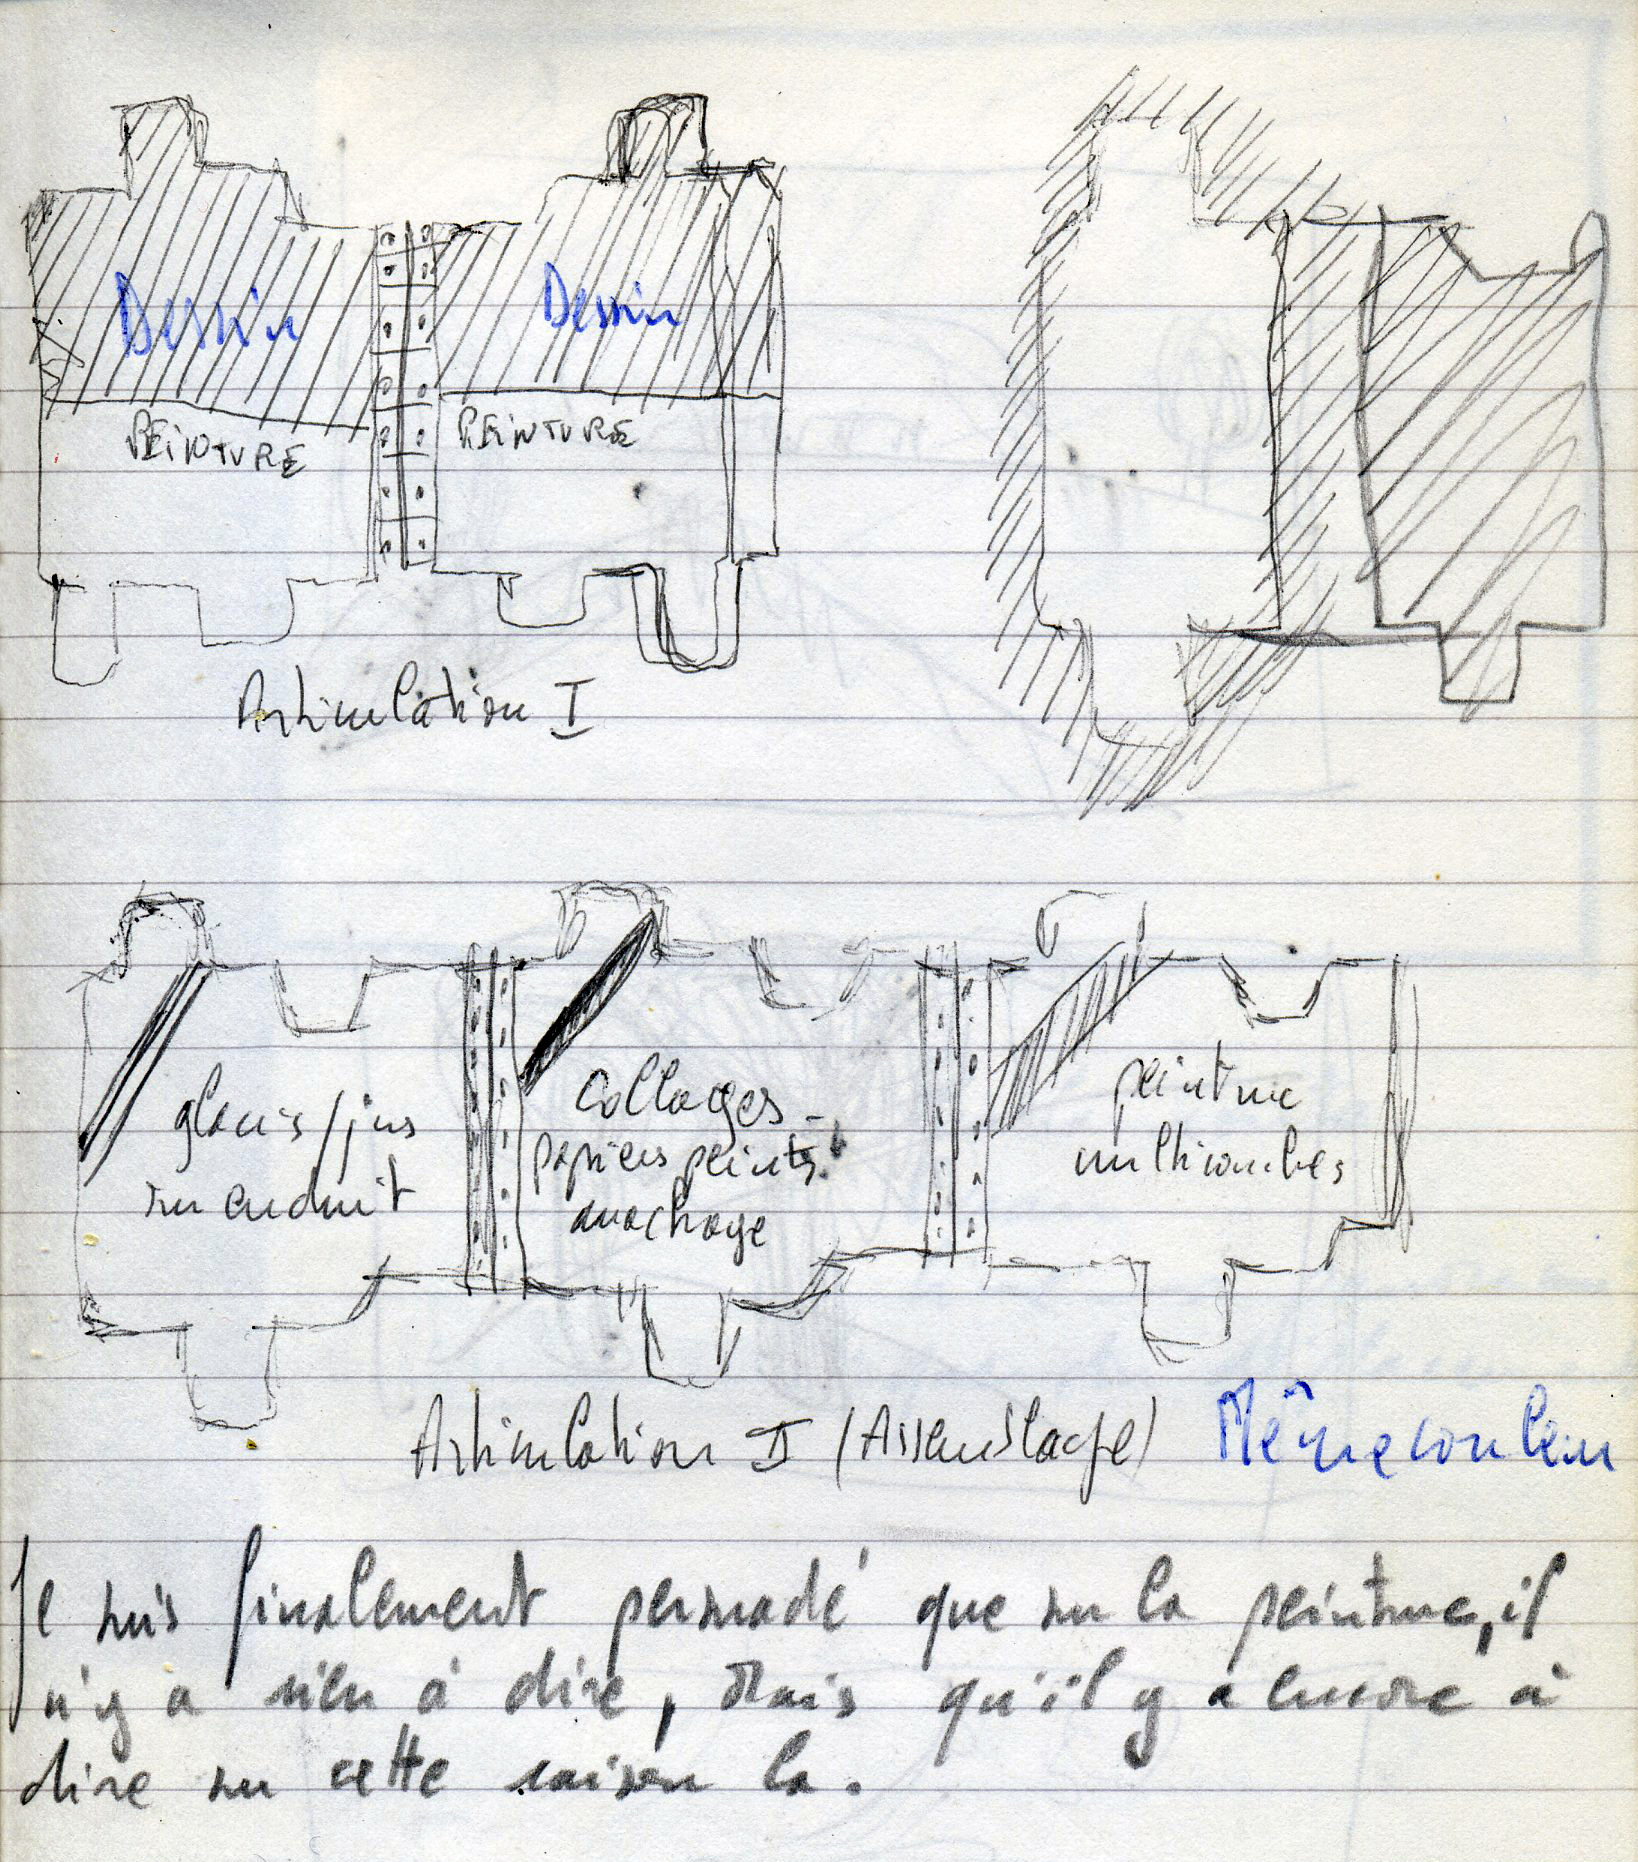 Dessin Dessin
PEINTURE PEINTURE
Articulation I
glacis/jus
sur enduit
Collages -
papiers peints.
arrachage
peinture
multicouches
Articulation II (Assemblage) Même couleur
Je suis finalement persuadé que sur la peinture, il
n'y a rien à dire, Mais qu'il y a encore à
dire sur cette raison la.